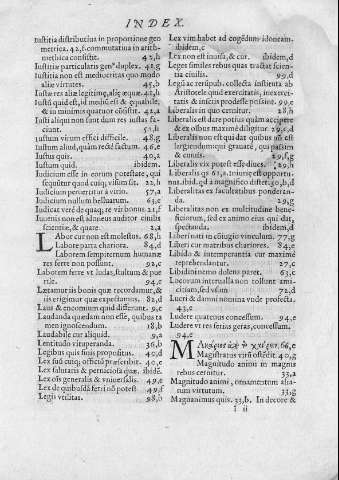 INDEX.
Iustitia distributiua in proportione geo
metrica. 42,f. commutatiua in arith-
methica consistit. 42,h
Iustitiæ particularis genus duplex. 41,g
Iustitia non est mediocritas quo modo
aliæ virtutes. 45,b
Iustæ res aliæ legitimæ, aliæ æquæ. 41,h
Iustū quid est, id mediū est & equabile,
& in minimis quatuor cōsistit. 42,e
Iusti aliqui non sunt dum res iustas fa-
ciunt. 51,h
Iustum virum effici difficile. 48,g
Iustum aliud, quàm rectè factum. 46,e
Iustus quis. 40,a
Iustum quid. ibidem.
Iudicium esse in eorum potestate, qui
sequūtur quod cuiq; visum sit. 22,h
Iudicium peruertit à vitio. 57,a
Iudicium nullum belluarum. 63,e
Iudicat verè de quaq; re vir bonus 21,f
Iuuenis non est idoneus auditor ciuilis
scientiæ, & quare. 2,a
LAbor cur non est molestus. 68,h
Labore parta chariora. 84,d
Laborem sempiternum humanæ
res ferre non possunt. 92,c
Laborem ferre vt ludas, stultum & pue
rile. 94,c
Lætamur iis bonis quæ recordamur, &
iis erigimur quæ expectamus. 82,d
Laus & encomium quid differant. 9,e
Laudanda quædam non esse, quibus ta
men ignoscendum. 18,b
Laudabile cur aliquid. 9,a
Lentitudo vituperanda. 36,b
Legibus quis finis propositus. 40,d
Lex quid suis cuiq; officiū præscribit. 40,e
Lex salutaris & perniciosa quæ. ibidē.
Lex oīs generalis & vniuersalis. 49,e
Lex de quibusdā ferri nō potest 49,f
Legis vtilitas. 98,b
Lex vim habet ad cogēdum idoneam.
ibidem,c
Lex non est inuisa, & cur. ibidem,d
Leges similes rebus quas tractat scien-
tia ciuilis. 99,d
Legū ac rerūpub. collecta instituta ab
Aristotele quid exercitatis, inexerci-
tatis & insciis prodesse possint. 99,e
Liberalis in quo cernitur. 28,h
Liberalis est dare potius quàm accipere
& ex oībus maximè diligitur. 29,c,d
Liberalis non est qui dat quibus nō est
largiendum: qui grauatè, qui passim
& cuiuis. 29,f,g
Liberalis vix potest esse diues. 29,h
Liberalitas non ex multitudine bene-
ficiorum, sed ex animo eius qui dat,
spectanda. ibidem,d
Liberi nati cōiugiū vinculum. 77,g
Liberi cur matribus chariores. 84,e
Libido & intemperantia cur maximè
reprehendantur. 27,c
Libidini nemo dolens paret. 63,c
Locorum interualla non tollunt ami-
citiam, sed vsum. 72,d
Lucri & damni nomina vnde profecta.
43,c
Ludere quatenus concessum. 94,e
Ludere vt res serias geras, concessum.
94,e
Magistratus virū ostēdit. 40,g
Magnitudo animi in magnis
rebus cernitur. 33,a
Magnitudo animi, ornamentum alia-
rum virtutum. 34,g
Magnanimus quis. 33,b. In decore &
I ii